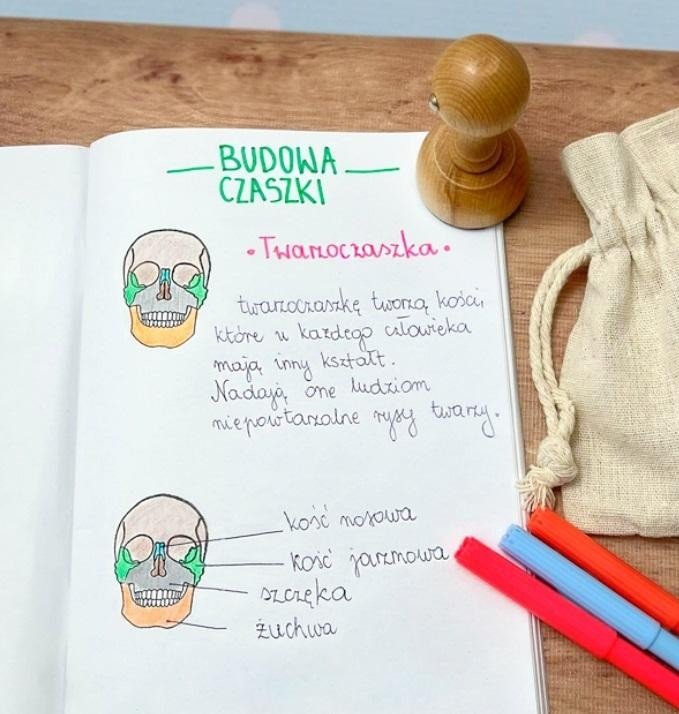 BUDOWA
CZASZKI
• Twarzoczaszka •
twarzoczaszkę tworzą kości,
które u każdego człowieka
mają inny kształt.
Nadają one ludziom
niepowtarzalne rysy twarzy.
kość nosowa
kość jarzmowa
szczęka
żuchwa